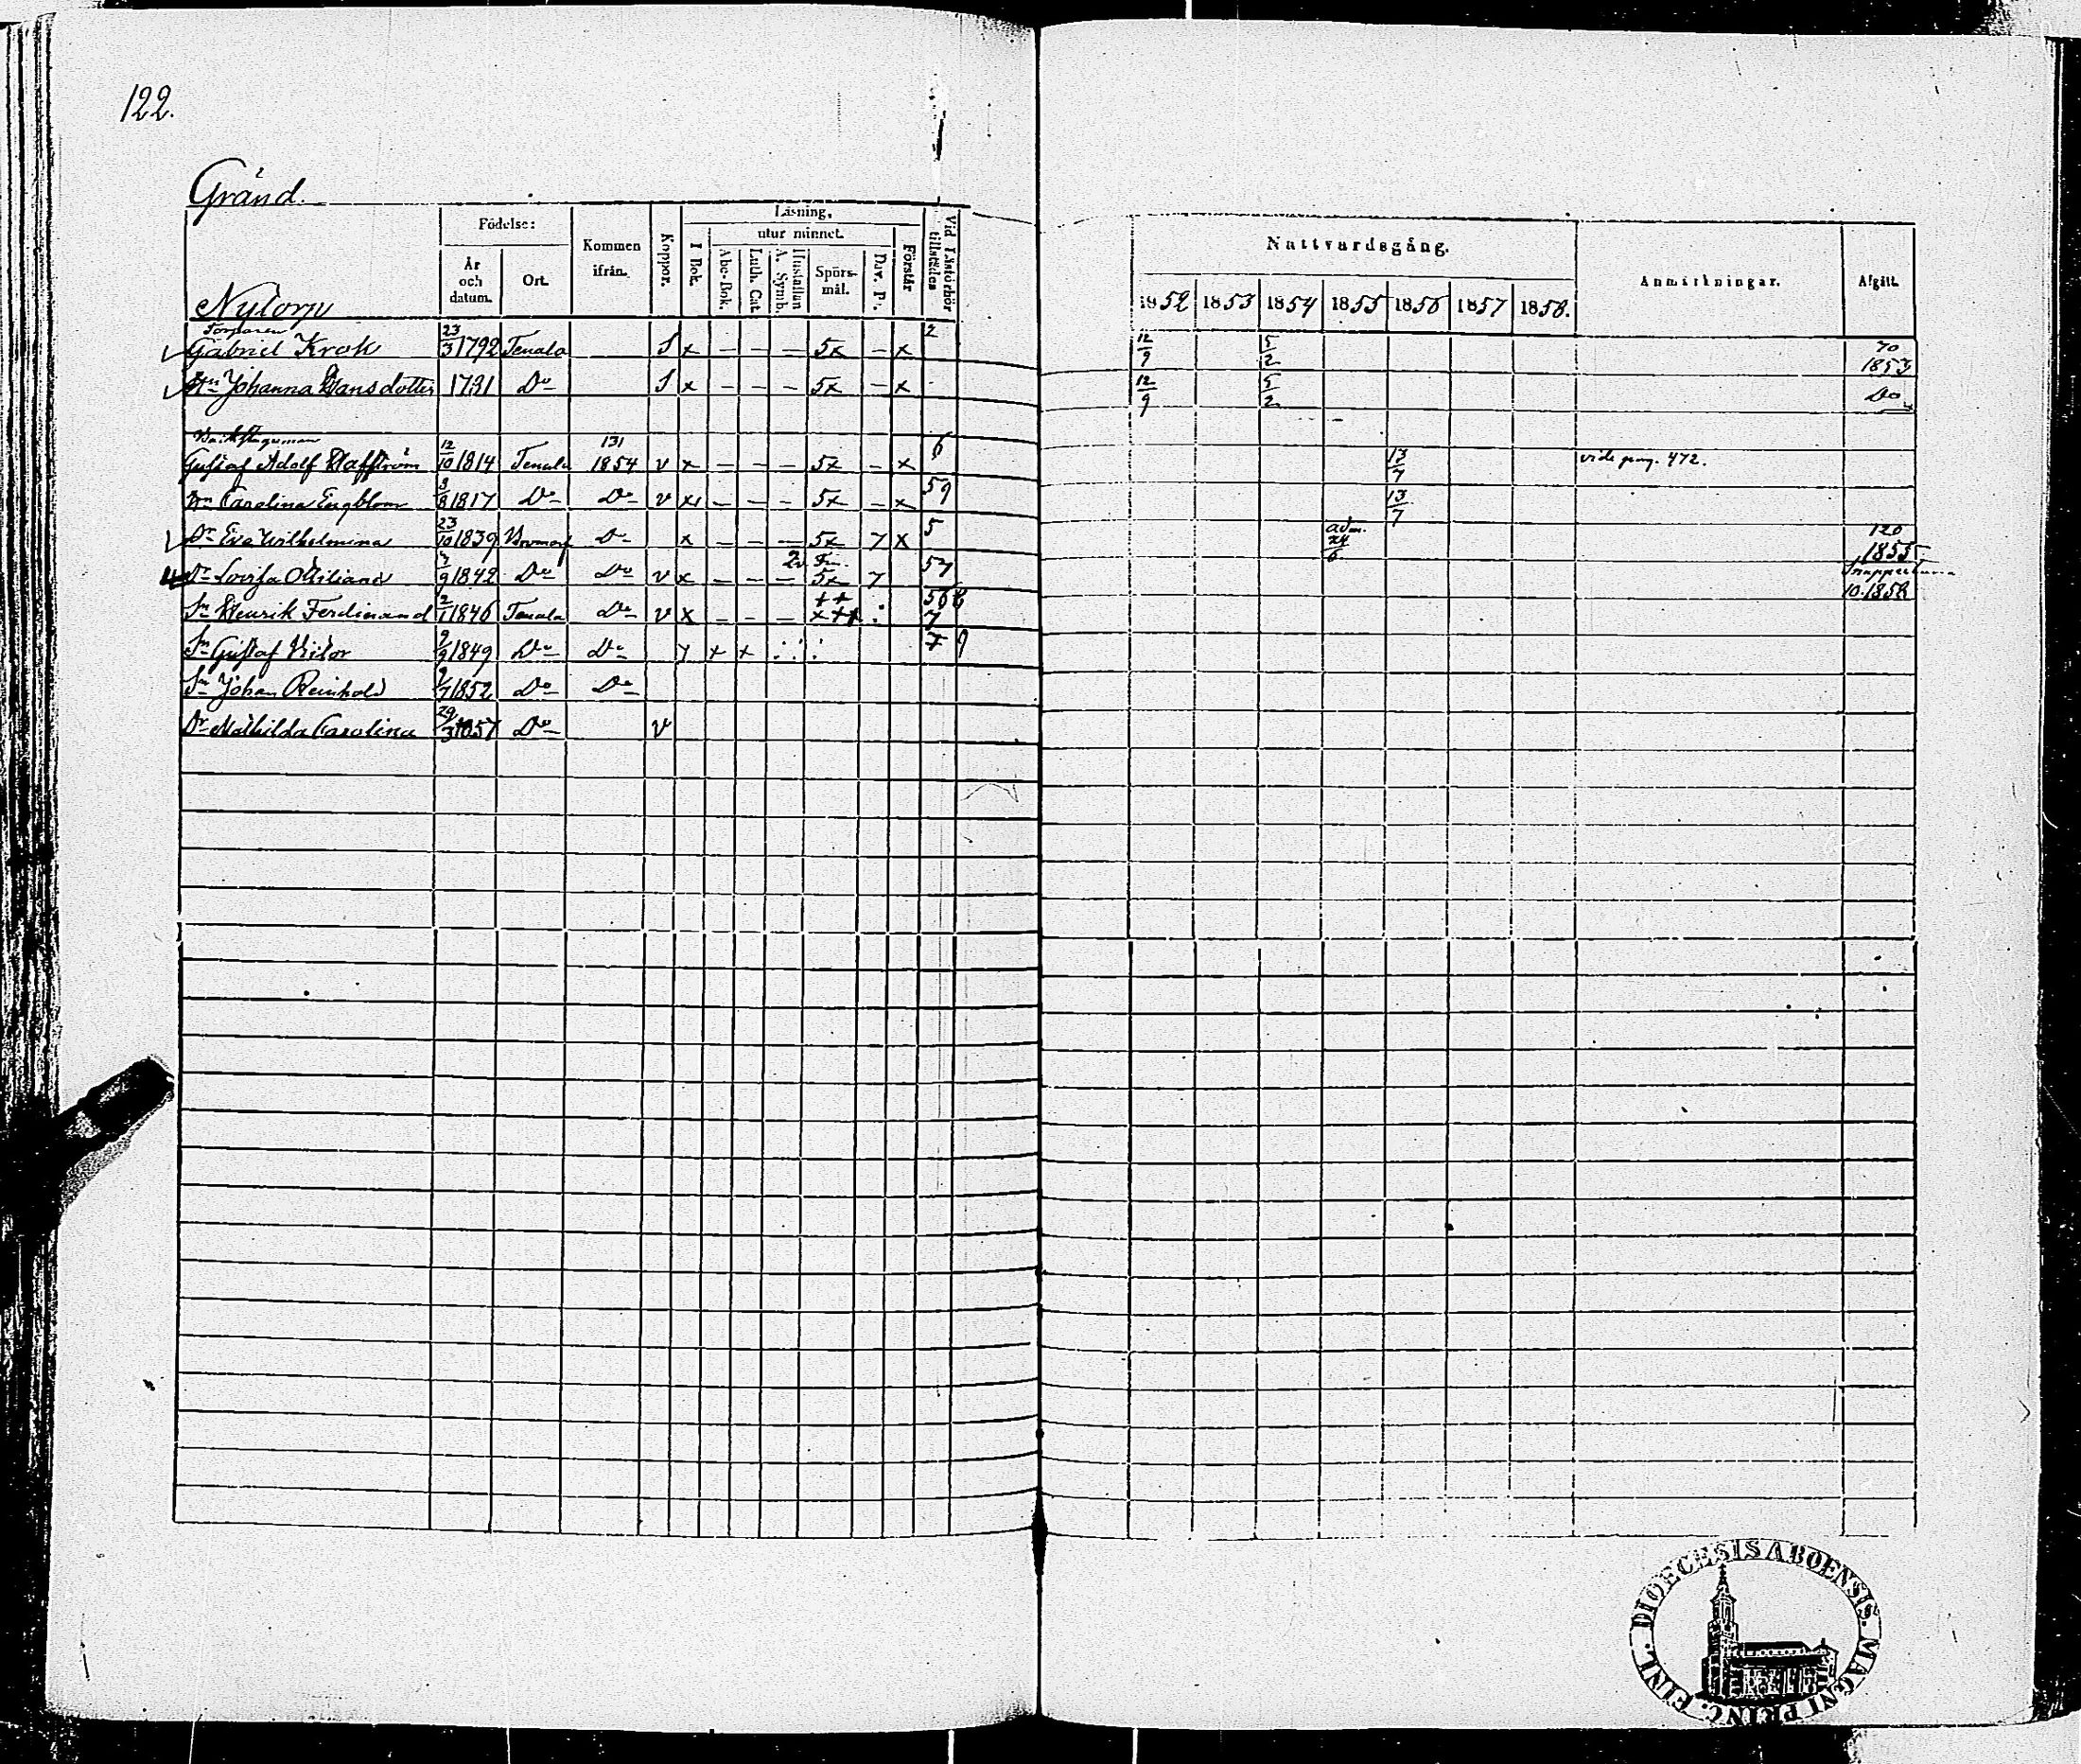 122.
Gränd.
Nytorp
Födelse:
År och datum.
Ort.
Kommen ifrån.
Koppor.
Läsning,
I Bok.
utur minnet.
Abc-Bok.
Luth. Cat
Hustaflan A. Symb.
Spörs-mål.
Dav. P.
Förstår
Vid Läsförhör tillstädes
Nattvardsgång.
1852 1853 1854 1855 1856 1857 1858.
Anmärkningar.
Afgått.
Torparen
Gabriel Krok 23/3 1792 Tenala S x – – – 5x – x 2 12/9 5/2 70 1853
Hn Johanna Hansdotter 1791 Do S x – – – 5x – x 12/9 5/2 Do
Gustaf Adolf Haffström 12/10 1814 Tenala 131 1854 v x – – – 5x – x 6 13/7 vide pag. 472.
Hn Carolina Engblom 3/8 1817 Do Do v x – – – 5x – x 59 13/7
Dr Eva Wilhelmina 23/10 1839 Do x – – – 5x 7 x 5 adm. 24/6 120 1855
Dr Lovisa 7/9 1842 Do Do v x – – – 5x 7 57 10. 1858
Sn Henrik Ferdinand 2/1 1846 Tenala Do v x – – – ++ x++ : 56 7
Sn Gustaf Victor 9/9 1849 Do Do 7 + + 7 9
Sn Johan Reinhold 9/7 1852 Do Do
Dr Mathilda Carolina 29/3 1857 Do v
DIOECESIS ABOENSIS. MAGNI PRINC. FINL.